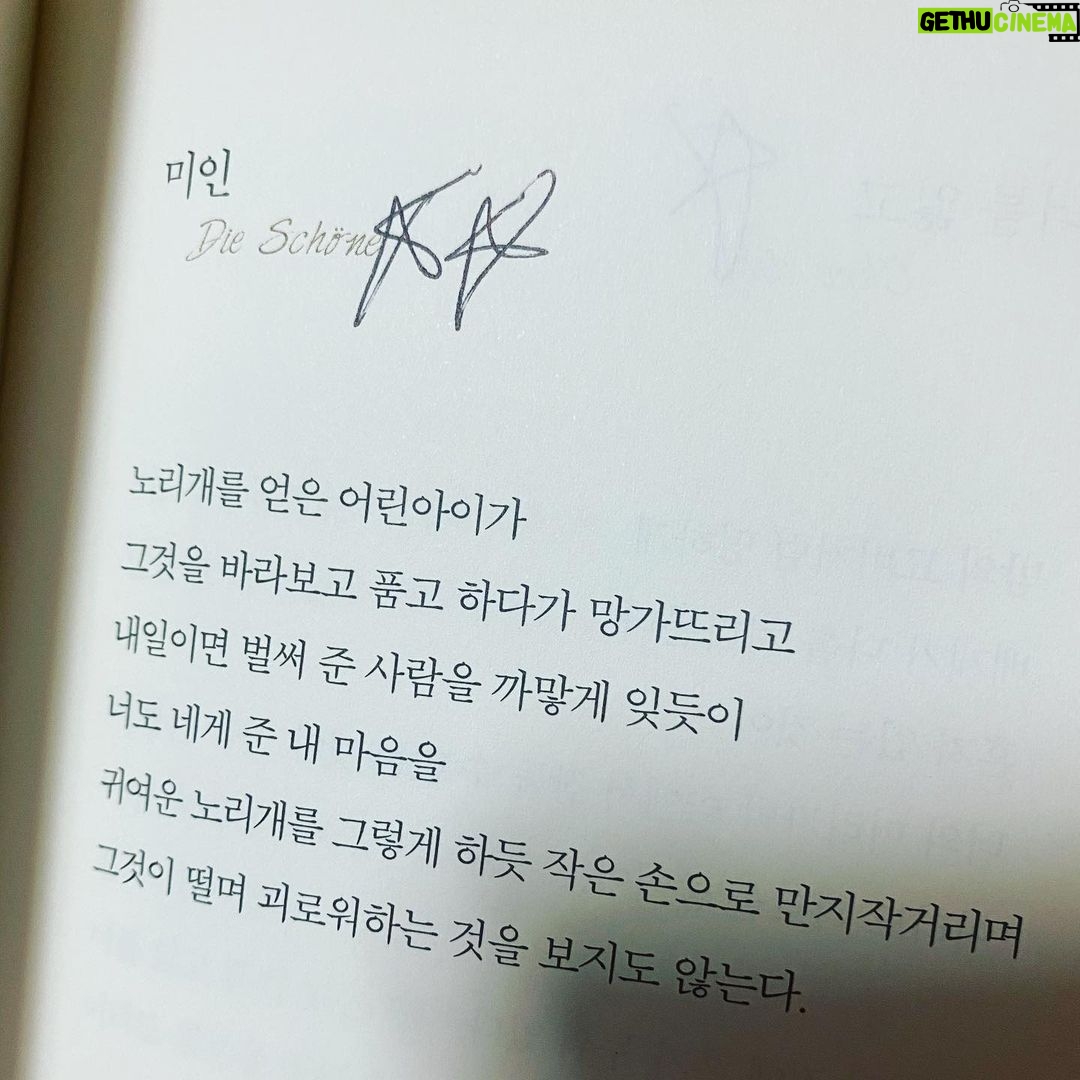 GETHUCINEMA
미인
Die Schöne
노리개를 얻은 어린아이가
그것을 바라보고 품고 하다가 망가뜨리고
내일이면 벌써 준 사람을 까맣게 잊듯이
너도 네게 준 내 마음을
귀여운 노리개를 그렇게 하듯 작은 손으로 만지작거리며
그것이 떨며 괴로워하는 것을 보지도 않는다.